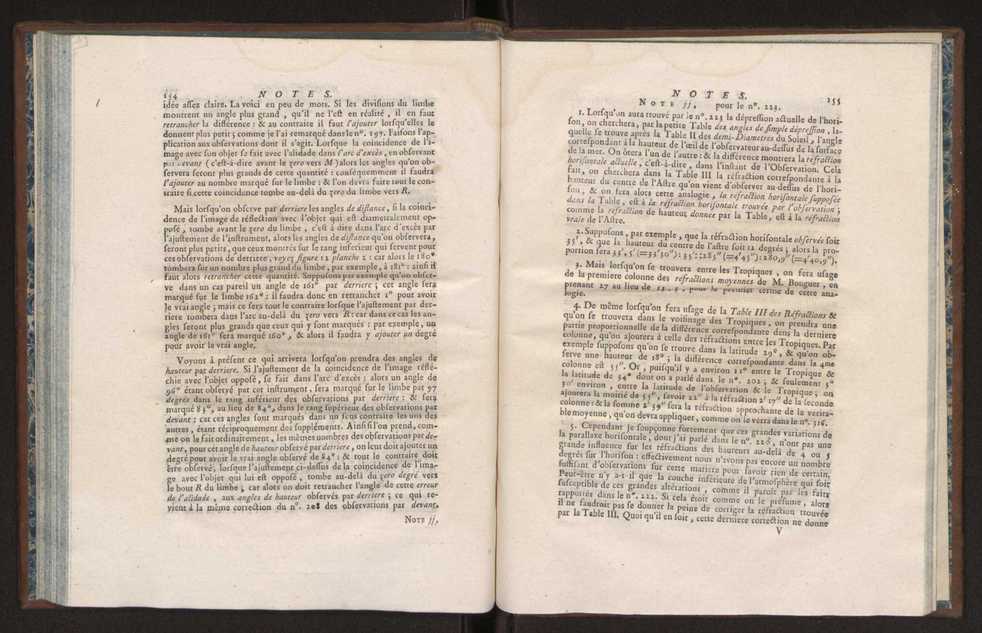 154 NOTES.
idée assez claire. La voici en peu de mots. Si les divisions du limbe
montrent un angle plus grand, qu'il ne l'est en réalité, il en faut
retrancher la différence : & au contraire il faut l'ajouter lorsqu'elles le
donnent plus petit ; comme je l'ai remarqué dans le n°. 197. Faisons l'ap-
plication aux observations dont il s'agit. Lorsque la coïncidence de l'i-
mage avec son objet se fait avec l'alidade dans l'arc d'excès, en observant
par-devant (c'est-à-dire avant le zero vers M) alors les angles qu'on ob-
servera seront plus grands de cette quantité : conséquemment il faudra
l'ajouter au nombre marqué sur le limbe : & l'on devra faire tout le con-
traire si cette coincidence tombe au-delà du zero du limbe vers R.
Mais lorsqu'on observe par derriere les angles de distance, si la coïnci-
dence de l'image de réflection avec l'objet qui est diametralement op-
posé, tombe avant le zero du limbe, c'est à dire dans l'arc d'excès par
l'ajustement de l'instrument, alors les angles de distance qu'on observera,
seront plus petits, que ceux montrés sur le rang inférieur qui servent pour
ces observations de derriere, voyez figure 12 planche 2 : car alors le 180°
tombera sur un nombre plus grand du limbe, par exemple, à 181° : ainsi il
faut alors retrancher cette quantité. Supposons par exemple qu'on obser-
ve dans un cas pareil un angle de 161° par derriere ; cet angle sera
marqué sur le limbe 162° : il faudra donc en retrancher 1° pour avoir
le vrai angle ; mais ce sera tout le contraire lorsque l'ajustement par der-
riere tombera dans l'arc au-delà du zero vers R : car dans ce cas les an-
gles seront plus grands que ceux qui y sont marqués : par exemple, un
angle de 161° sera marqué 160°, & alors il faudra y ajouter un degré
pour avoir le vrai angle.
Voyons à présent ce qui arrivera lorsqu'on prendra des angles de
hauteur par derriere. Si l'ajustement de la coïncidence de l'image réflé-
chie avec l'objet opposé, se fait dans l'arc d'excès : alors un angle de
96° étant observé par cet instrument, sera marqué sur le limbe par 97
degrés dans le rang inférieur des observations par derriere : & sera
marqué 83°, au lieu de 84°, dans le rang supérieur des observations par
devant ; car ces angles sont marqués dans un sens contraire les uns des
autres, étant réciproquement des supplémens. Ainsi si l'on prend, com-
me on le fait ordinairement, les mêmes nombres des observations par de-
vant, pour cet angle de hauteur observé par derriere, on leur doit ajouter un
degré pour avoir le vrai angle observé de 84° : & tout le contraire doit
être observé, lorsque l'ajustement ci-dessus de la coïncidence de l'ima-
ge avec l'objet qui lui est opposé, tombe au-delà du zero degré vers
le bout R du limbe ; car alors on doit retrancher l'angle de cette erreur
de l'alidade, aux angles de hauteur observés par derriere ; ce qui re-
vient à la même correction du n°. 208 des observations par devant.
NOTE jj,
NOTES. 155
NOTE jj, pour le n°. 223.
1. Lorsqu'on aura trouvé par le n°. 223 la dépression actuelle de l'hori-
son, on cherchera, par la petite Table des angles de simple dépression, la-
quelle se trouve après la Table II des demi-Diametres du Soleil, l'angle
correspondant à la hauteur de l'œil de l'observateur au-dessus de la surface
de la mer. On ôtera l'un de l'autre : & la différence montrera la réfraction
horisontale actuelle, c'est-à-dire, dans l'instant de l'Observation. Cela
fait, on cherchera dans la Table III la réfraction correspondante à la
hauteur du centre de l'Astre qu'on vient d'observer au-dessus de l'hori-
son, & on fera alors cette analogie, la refraction horisontale supposée
dans la Table, est à la réfraction horisontale trouvée par l'observation ;
comme la réfraction de hauteur donnée par la Table, est à la réfraction
vraie de l'Astre.
2. Supposons, par exemple, que la réfraction horisontale observée soit
33', & que la hauteur du centre de l'astre soit 12 degrés ; alors la pro-
portion sera 33',5 (=33'30") : 33' : : 285" (=4'45") : 280,9" (=4'40,9").
3. Mais lorsqu'on se trouvera entre les Tropiques, on fera usage
de la premiere colonne des réfractions moyennes de M. Bouguer, en
prenant 27 au lieu de pour le premier terme de cette ana-
logie.
4. De même lorsqu'on fera usage de la Table III des Réfractions &
qu'on se trouvera dans le voisinage des Tropiques, on prendra une
partie proportionnelle de la différence correspondante dans la derniere
colonne, qu'on ajoutera à celle des réfractions entre les Tropiques. Par
exemple supposons qu'on se trouve dans la latitude 29°, & qu'on ob-
serve une hauteur de 18° ; la différence correspondante dans la 4me
colonne est 55". Or, puisqu'il y a environ 11° entre le Tropique &
la latitude de 34° dont on a parlé dans le n°. 202 ; & seulement 5°
30' environ, entre la latitude de l'observation & le Tropique ; on
ajoutera la moitié de 55", savoir 22" à la réfraction 2' 17" de la seconde
colonne : & la somme 2' 39" sera la réfraction approchante de la verita-
ble moyenne, qu'on devra appliquer, comme on le verra dans le n°. 316.
5. Cependant je soupçonne fortement que ces grandes variations de
la parallaxe horisontale, dont j'ai parlé dans le n°. 226, n'ont pas une
grande influence sur les réfractions des hauteurs au-delà de 4 ou 5
degrés sur l'horison : effectivement nous n'avons pas encore un nombre
suffisant d'observations sur cette matiere pour savoir rien de certain.
Peut-être n'y a-t-il que la couche inférieure de l'atmosphère qui soit
susceptible de ces grandes altérations, comme il paroît par les faits
rapportés dans le n°. 222. Si cela étoit comme on le présume, alors
il ne faudroit pas se donner la peine de corriger la réfraction trouvée
par la Table III. Quoi qu'il en soit, cette derniere correction ne donne
V